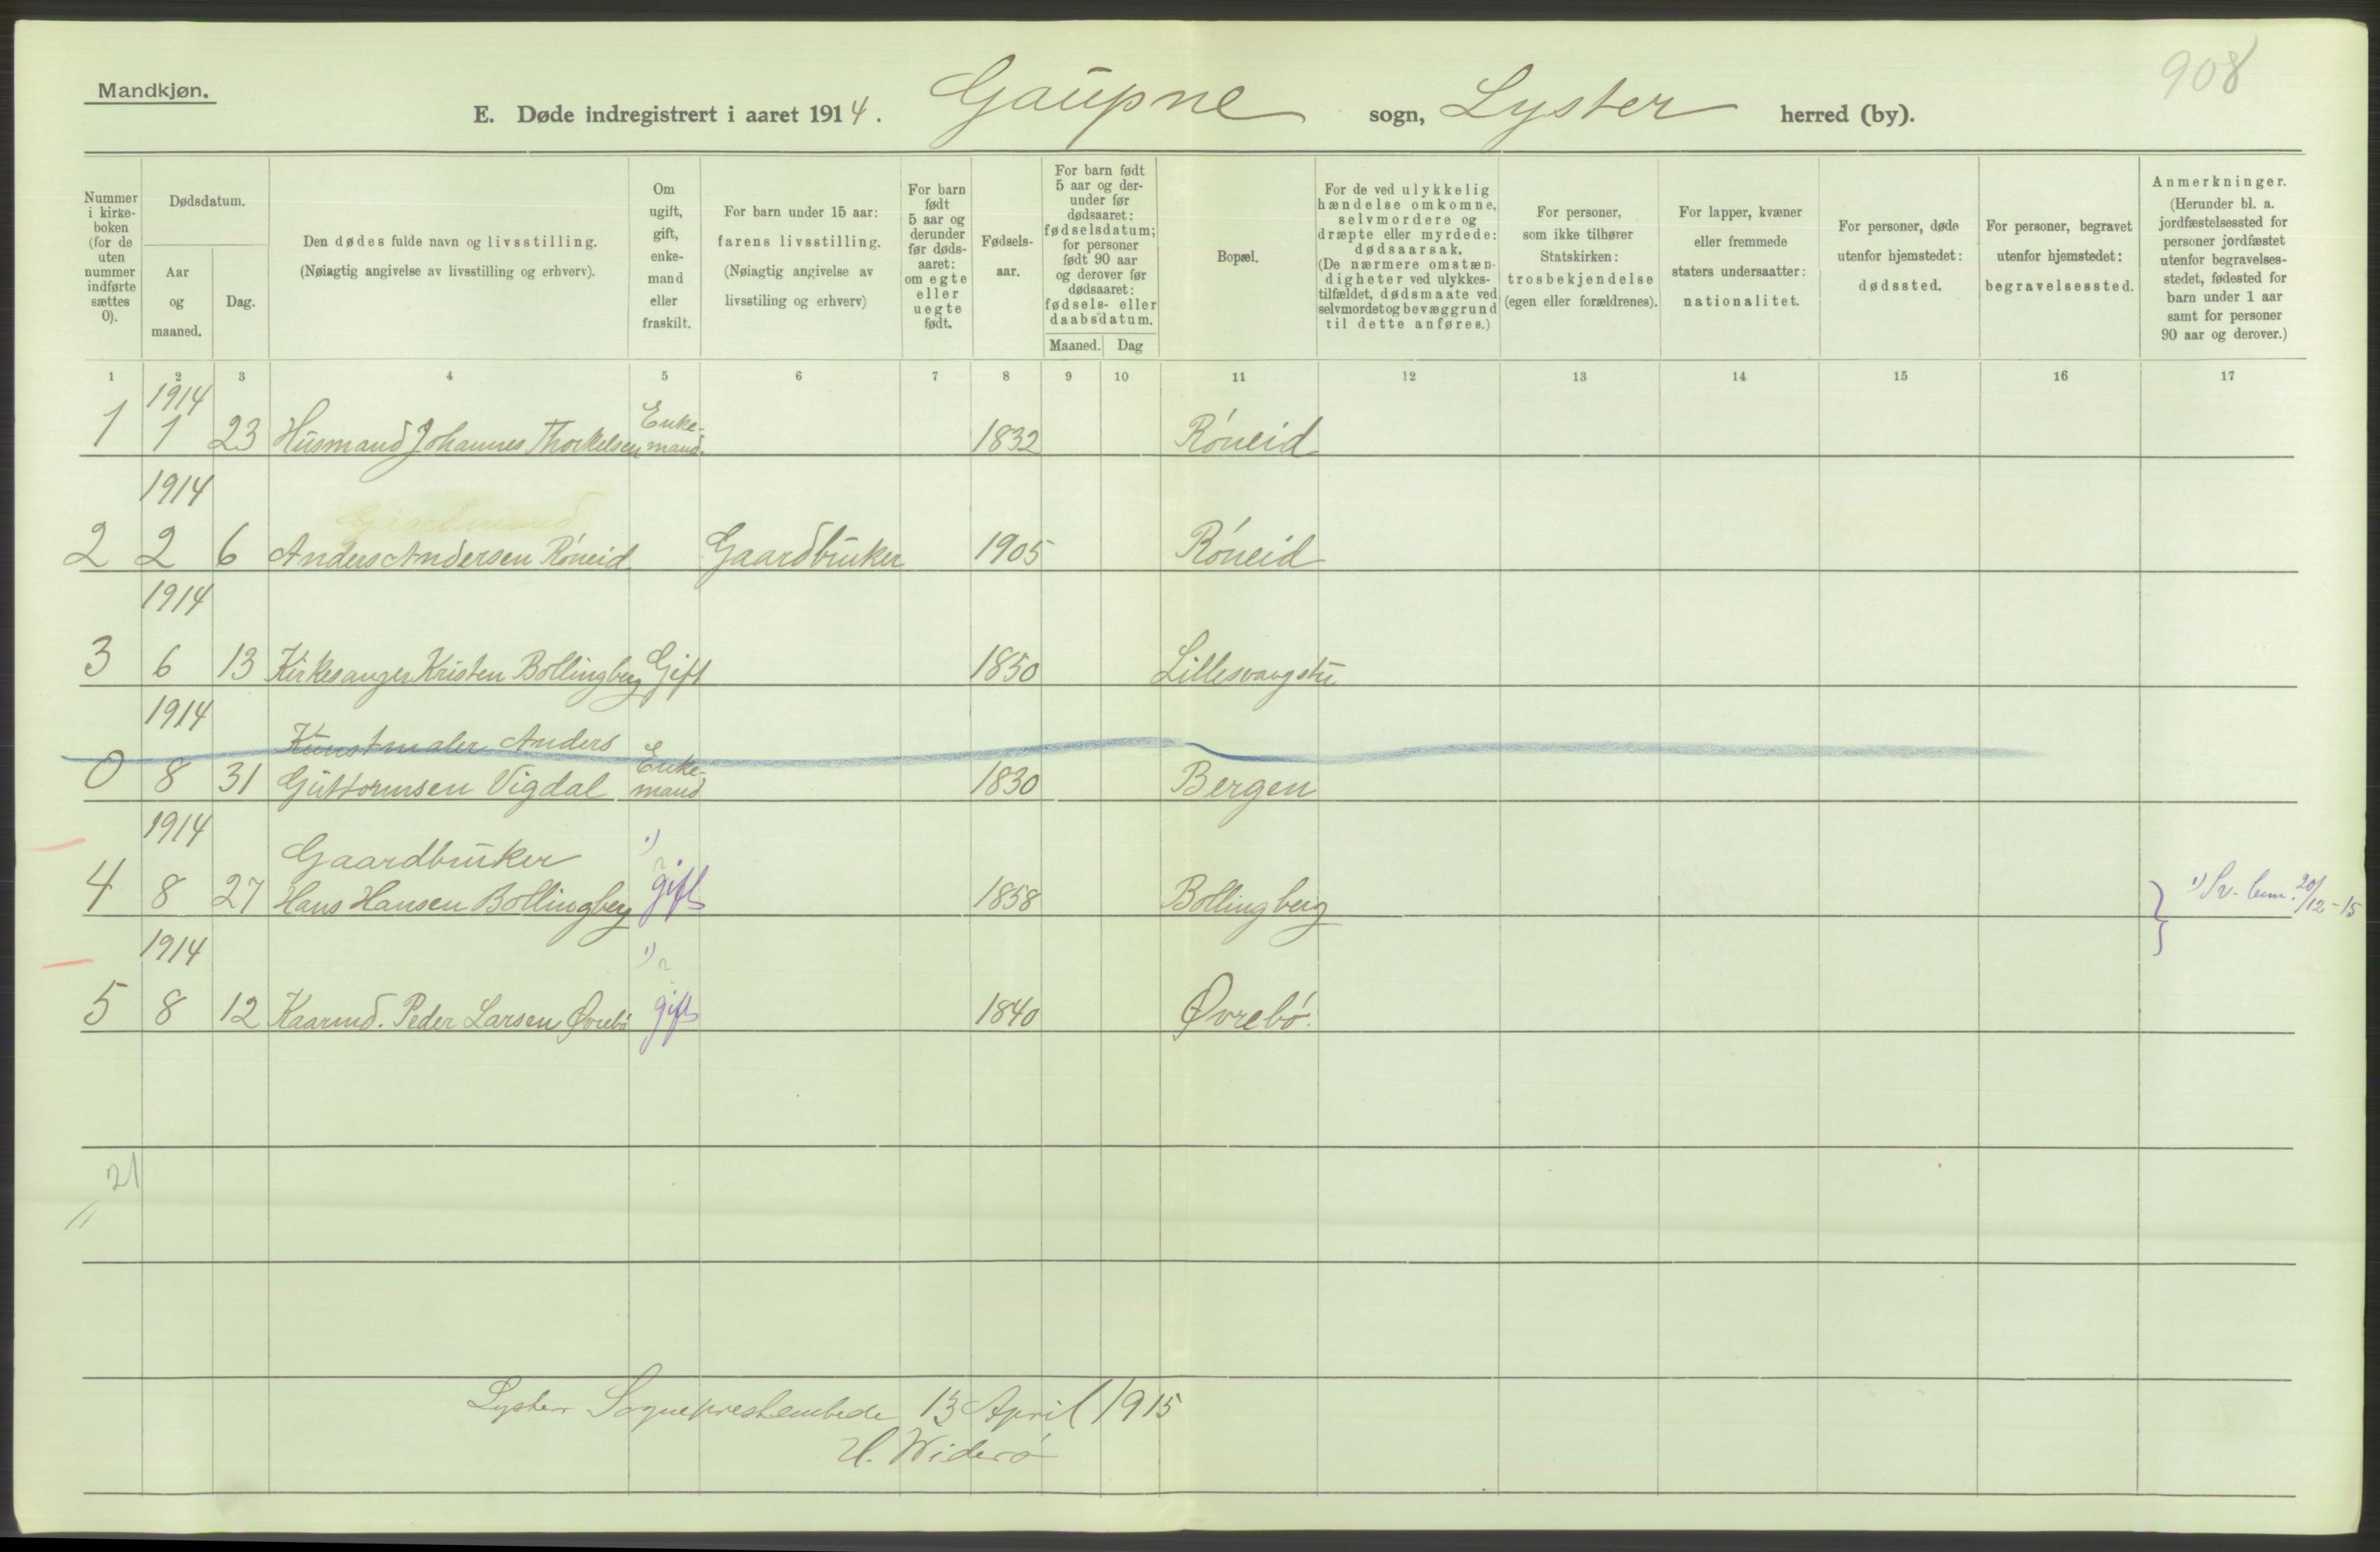 908
Mandkjøn.
E. Døde indregistrert i aaret 1914. Gaupne sogn, Lyster herred (by).
Nummer i kirke- boken (for de uten nummer indførte sættes 0).
Dødsdatum.
Aar og maaned.
Dag.
Den dødes fulde navn og livsstilling.
(Nøiagtig angivelse av livsstilling og erhverv).
Om ugift, gift, enke- mand eller fraskilt.
For barn under 15 aar: farens livsstilling.
(Nøiagtig angivelse av livsstiling og erhverv)
For barn født 5 aar og derunder før døds- aaret: om egte eller uegte født.
Fødsels- aar.
For barn født 5 aar og der- under før dødsaaret: fødselsdatum; for personer født 90 aar og derover før dødsaaret: fødsels- eller daabsdatum.
Maaned. Dag
Bopæl.
For de ved ulykkelig hændelse omkomne, selvmordere og dræpte eller myrdede: dødsaarsak.
(De nærmere omstæn- digheter ved ulykkes- tilfældet, dødsmaate ved selvmordet og bevæggrund til dette anføres.)
For personer, som ikke tilhører Statskirken: trosbekjendelse (egen eller forældrenes).
For lapper, kvæner eller fremmede staters undersaatter: nationalitet.
For personer, døde utenfor hjemstedet: dødssted.
For personer, begravet utenfor hjemstedet: begravelsessted.
Anmerkninger.
(Herunder bl. a. jordfæstelsessted for personer jordfæstet utenfor begravelses- stedet, fødested for barn under 1 aar samt for personer 90 aar og derover.)
1 2 3 4 5 6 7 8 9 10 11 12 13 14 15 16 17
1914 Enke-
1 1 23 Husmand Johannes Thorkelsen mand. 1832 Róneid
1914
Gaardmand
2 2 6 Anders Andersen Róneid Gaardbruker 1905 Róneid
1914
3 6 13 Kirkesanger Kristen Bollingberg Gift 1850 Lillesvangstu
1914
Kunstmaler Anders Enke-
0 8 31 Guttormsen Vigdal mand 1830 Bergen
1914 1)
Gaardbruker
4 8 27 Hans Hansen Bollingberg gift 1858 Bollingberg 1) Sv- 20/12-15
1914 1)
5 8 12 Kaarmd. Peder Larsen Øvrebó gift 1840 Øvrebó.
21
Lyster Sogneprestembede 13 April 1915
H. Widerö